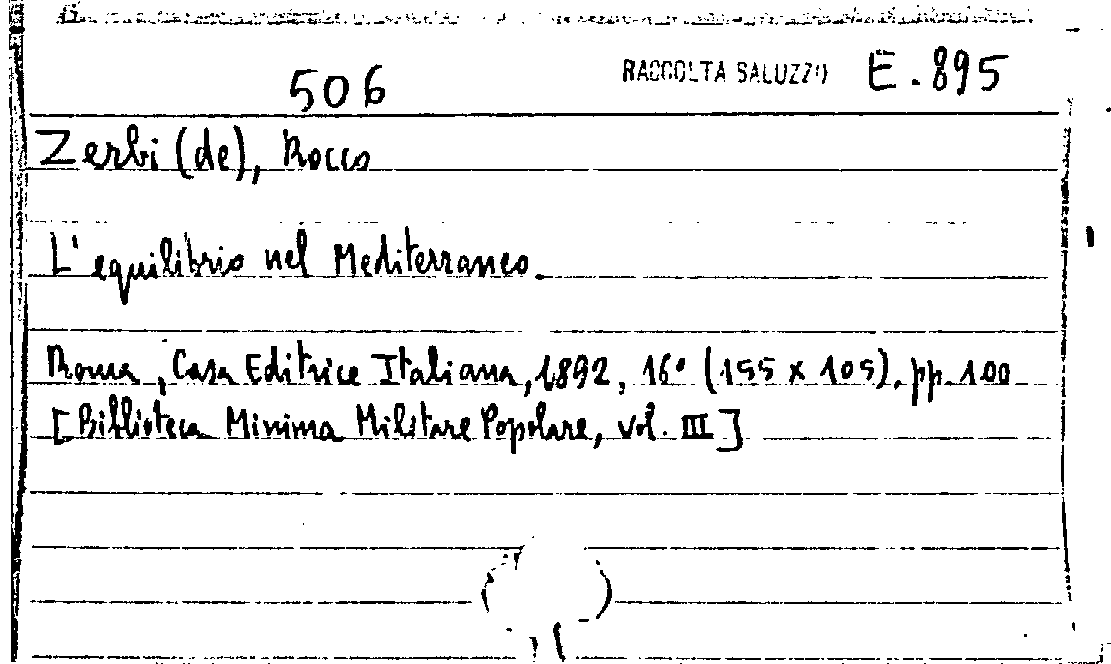 506 RACCOLTA SALUZZO E.895
Zerbi (de), Rocco
L'equilibrio nel Mediterraneo.
Roma, Casa Editrice Italiana, 1892, 16° (155 x 105), pp. 100
[Biblioteca Minima Militare Popolare, vol. III]